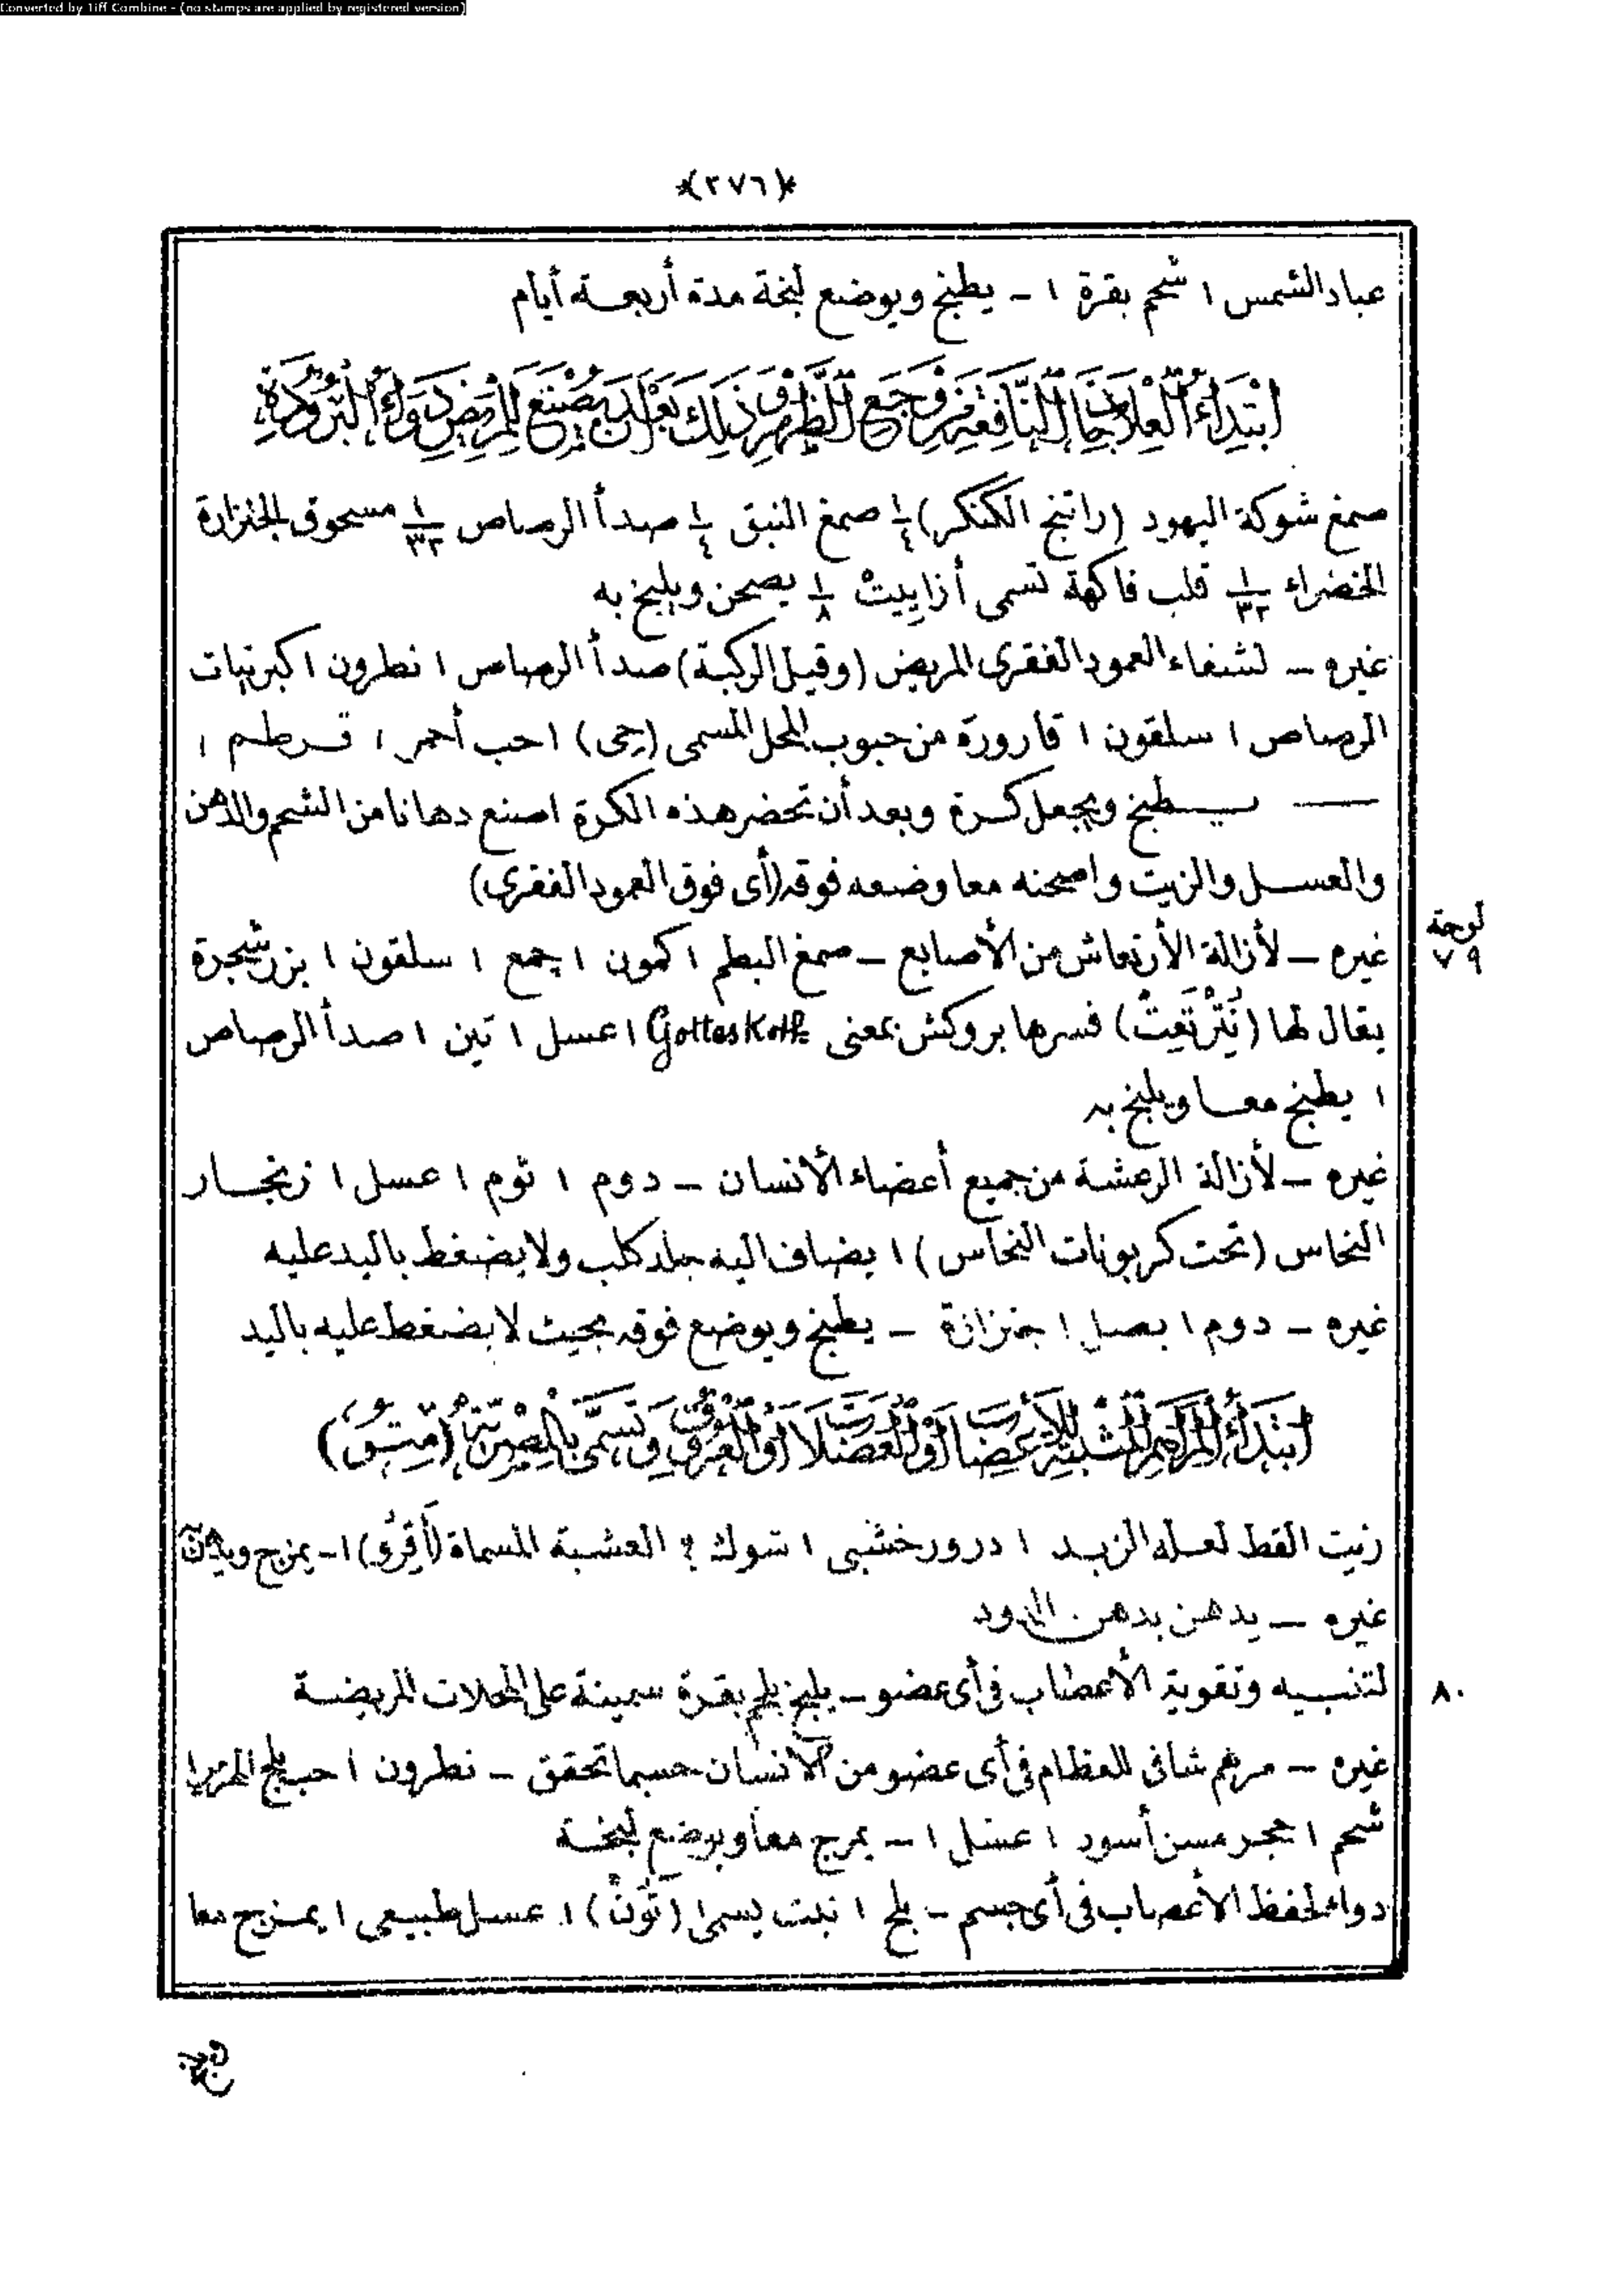 Converted by Tiff Combine - (no stamps are applied by registered version)
*(٢٧٦)*
عباد الشمس ١ شحم بقرة ١ – يطبخ ويوضع لبخة مدة أربعة أيام
ابْتِدَاءُ الْعِلَاجَاتِ النَّافِعَةِ مِنْ وَجَعِ الظَّهْرِ وَذَلِكَ بَعْدَ أَنْ يُصْنَعَ لِلْمَرِيضِ دَوَاءُ الْبُرُودَةِ
صمغ شوكة اليهود (راتنج الكنكر) ١/٤ صمغ النبق ١/٤ صدأ الرصاص ١/٣٢ مسحوق الجنزارة
الخضراء ١/٣٢ قلب فاكهة تسمى أزاييتْ ١/٨ يصحن ويلبخ به
غيره – لشفاء العمود الفقرى المريض (وقيل الركبة) صدأ الرصاص ١ نطرون ١ كبرتيات
الرصاص ١ سلقون ١ قارورة من حبوب المحل المسمى (جى) ١ حب أحمر ١ قرطم ١
— يطبخ ويجعل كرة وبعد أن تحضر هذه الكرة اصنع دهانا من الشحم والدهن
والعسل والزيت واصحنه معا وضعه فوقه (أى فوق العمود الفقرى)
لوحة ٧٩
غيره – لأزالة الأرتعاش من الأصابع – صمغ البطم ١ كمون ١ جمع ١ سلقون ١ بزر شجرة
يقال لها (نِتْرتَعِتْ) فسرها بروكش بمعنى Gotteskoth ١ عسل ١ تين ١ صدأ الرصاص
١ يطبخ معا ويلبخ به
غيره – لأزالة الرعشة من جميع أعضاء الأنسان – دوم ١ ثوم ١ عسل ١ زنجار
النحاس (تحت كربونات النحاس) ١ يضاف اليه جلد كلب ولا يضغط باليد عليه
غيره – دوم ١ بصل ١ جنزارة – يطبخ ويوضع فوقه بحيث لا يضغط عليه باليد
ابْتِدَاءُ الْمَرَاهِمِ الْمُنَبِّهَةِ لِلْأَعْصَابِ أَوِ الْعَضَلَاتِ أَوِ الْعُرُوقِ وَتُسَمَّى بِالْمِصْرِيَّةِ (مِتُّو)
زيت القط لعله الزبد ١ درور خشبى ١ شوك ؟ العشبة المسماة (أَقِرُو) ١ – يمزج ويدهن
غيره – يدهن بدهن الدود
٨٠
لتنبيه وتقوية الأعصاب فى أى عضو – يلبخ بلحم بقرة سمينة على المحلات المريضة
غيره – مرهم شافى للعظام فى أى عضو من الانسان حسبما تحقق – نطرون ١ حب بلح
شحم ١ حجر مسن أسود ١ عسل ١ – يمزج معا ويوضع لبخة
دواء لحفظ الأعصاب فى أى جسم – بلح ١ نبت يسمى (تَونْ) ١ عسل طبيعى ١ يمزج معا